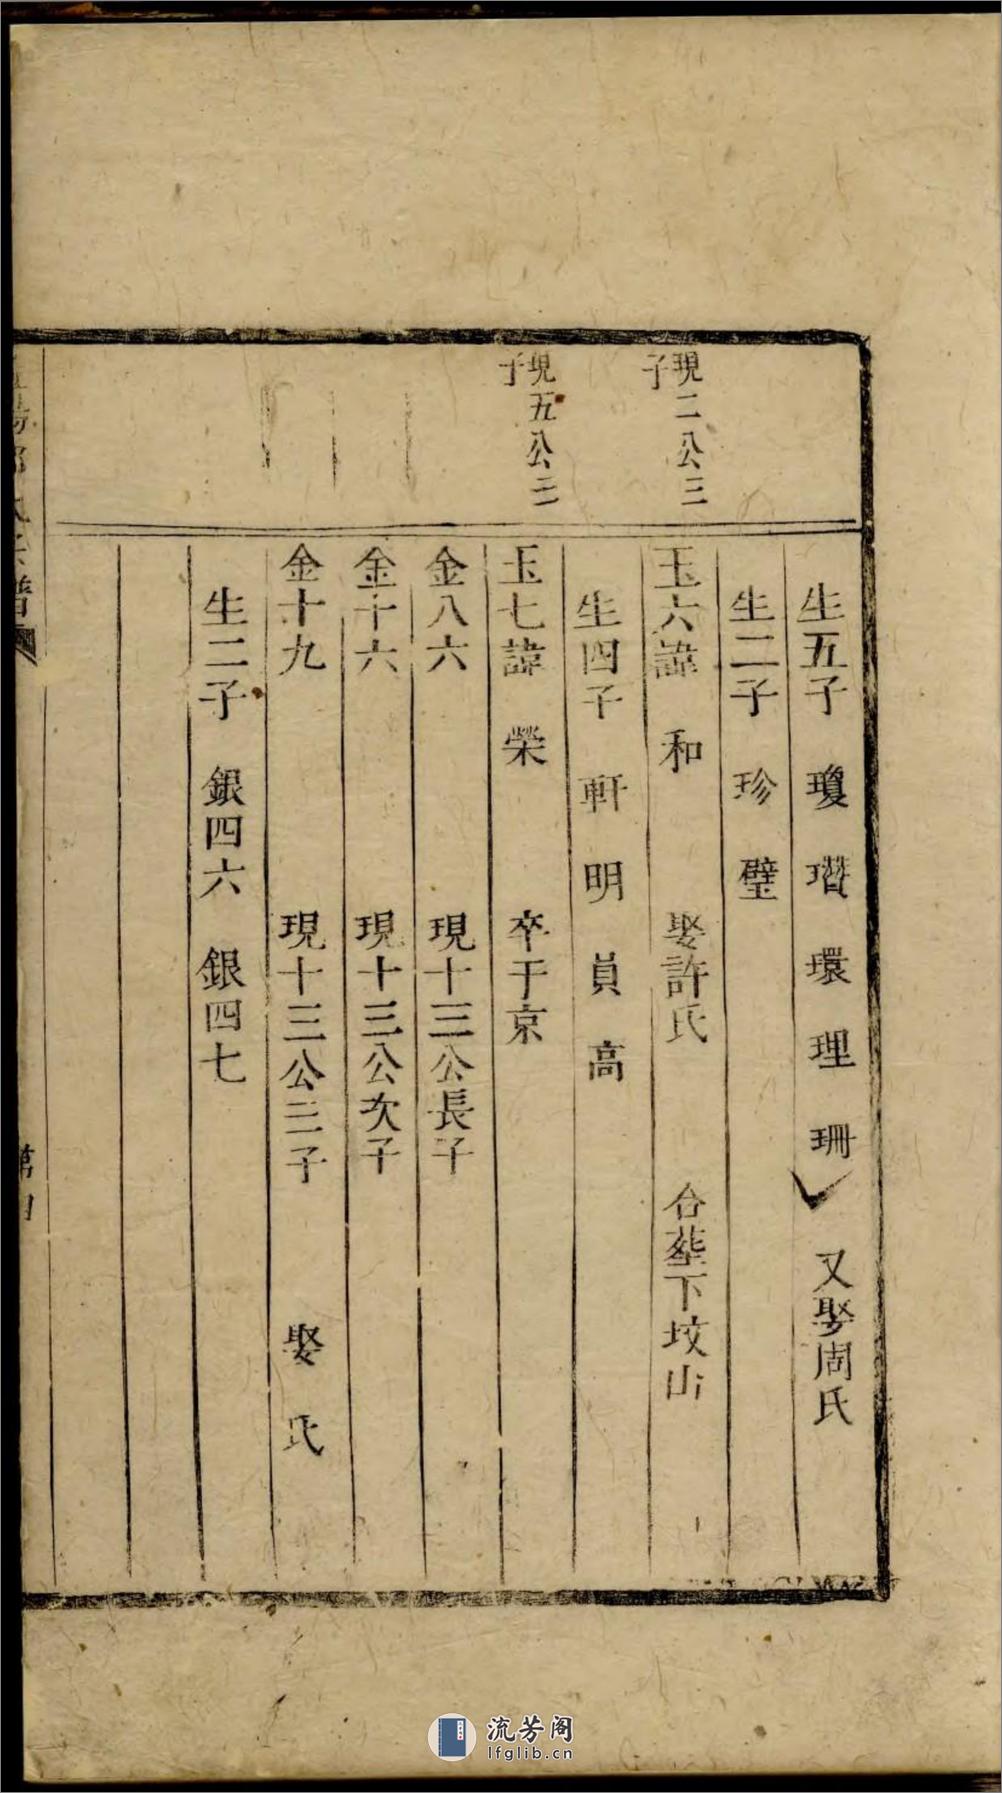 生五子 瓊 瑨 環 理 珊 又娶周氏
生二子 珍 璧
現二公三子
玉六諱 和 娶許氏 合塟下坟山
生四子 軒 明 員 高
現五公二子
玉七諱 榮 卒于京
金八六 現十三公長子
金十六 現十三公次子
金十九 現十三公三子 娶 氏
生二子 銀四六 銀四七
氏宗譜
第四
流芳阁
lfglib.cn